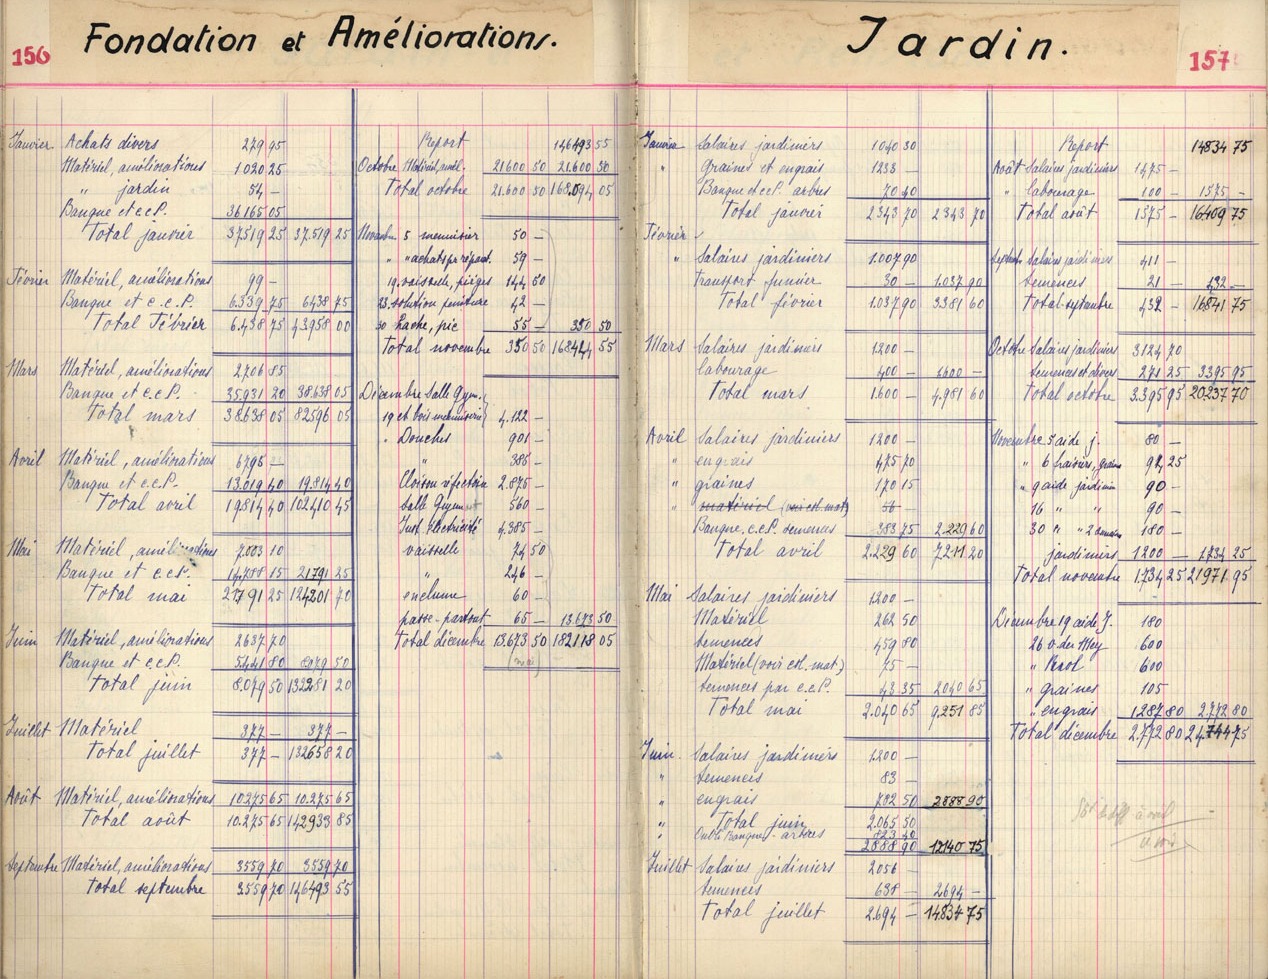 156
Fondation et Améliorations.
Janvier Achats divers 279 95
Matériel, améliorations 1020 25
" jardin 54 —
Banque et c.c.P. 36165 05
Total janvier 37519 25 37.519 25
Février Matériel, améliorations 99 —
Banque et c.c.P. 6.339 75 6438 75
Total Février 6.438 75 43958 00
Mars Matériel, améliorations 2706 85
Banque et c.c.P. 35931 20 38.638 05
Total mars 38638 05 82596 05
Avril Matériel, améliorations 6795 —
Banque et c.c.P. 13.019 40 19.814 40
Total avril 19814 40 102410 45
Mai Matériel, améliorations 7003 10
Banque et c.c.P. 14788 15 21791 25
Total mai 21791 25 124201 70
Juin Matériel, améliorations 2637 70
Banque et c.c.P. 5441 80 8079 50
Total juin 8.079 50 132281 20
Juillet Matériel 377 — 377 —
Total juillet 377 — 132658 20
Août Matériel, améliorations 10275 65 10.275 65
Total août 10.275 65 142933 85
Septembre Matériel, améliorations 3559 70 3559 70
Total septembre 3559 70 146493 55
Report 146493 55
Octobre Matériel, amél. 21600 50 21.600 50
Total octobre 21.600 50 168.094 05
Novembre 5 menuisier 50 —
" " achats pr répart. 59 —
19. vaisselle, pièges 144 50
23. solution peinture 42 —
30 hache, pic 55 — 350 50
Total novembre 350 50 168444 55
Décembre Salle Gym.
19 et bois menuiserie 4.122 —
" Douches 901 —
" 385 —
Cloison réfectoire 2.875 —
Salle Gym 560 —
Inst. électricité 4.385 —
vaisselle 74 50
" 246 —
enclume 60 —
passe-partout 65 — 13.673 50
Total décembre 13.673 50 182118 05
Jardin.
157
Janvier Salaires jardiniers 1040 30
" Graines et engrais 1233 —
Banque et c.c.P. arbres 70 40
Total janvier 2343 70 2343 70
Février
" Salaires jardiniers 1.007 90
Transport fumier 30 — 1.037 90
Total février 1.037 90 3381 60
Mars Salaires jardiniers 1200 —
labourage 400 — 1600 —
Total mars 1.600 — 4.981 60
Avril Salaires jardiniers 1200 —
" engrais 475 70
" graines 170 15
" matériel (voir est. mat) 56 —
Banque, c.c.P. semences 383 75 2.229 60
Total avril 2.229 60 7211 20
Mai Salaires jardiniers 1200 —
Matériel 262 50
semences 459 80
Matériel (voir est. mat) 75 —
semences par c.c.P. 43 35 2040 65
Total mai 2.040 65 9.251 85
Juin. Salaires jardiniers 1200 —
" semences 83 —
" engrais 782 50 2888 90
" Total juin 2.065 50
" Oubli Banque - arbres 823 40
2888 90 12140 75
Juillet Salaires jardiniers 2056 —
semences 638 — 2694 —
Total juillet 2.694 — 14834 75
Report 14834 75
Août Salaires jardiniers 1475 —
" labourage 100 — 1575 —
Total août 1575 — 16409 75
Septemb. Salaires jardiniers 411 —
semences 21 — 432 —
Total septembre 432 — 16841 75
Octobre Salaires jardiniers 3124 70
semences et divers 271 25 3395 95
Total octobre 3.395 95 20237 70
Novembre 5 aide j. 80 —
" 6 fraisiers, graines 94 25
" 9 aide jardinier 90 —
16 " " 90 —
30 " " 2 semaines 180 —
jardiniers 1200 — 1734 25
Total novembre 1.734 25 21971 95
Décembre 19 aide J. 180
26 v. der Mey 600
" Krol 600
" graines 105
" engrais 1287 80 2.772 80
Total décembre 2.772 80 24744 75